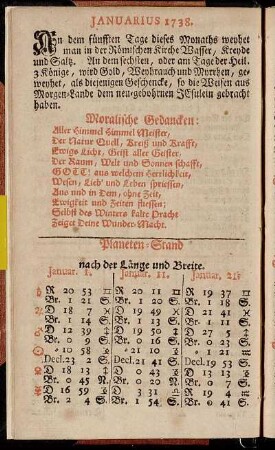 JANUARIUS 1738.
An dem fünfften Tage dieses Monaths weyhet
man in der Römischen Kirche Wasser, Kreyde
und Saltz. An dem sechsten, oder am Tage der Heil.
3. Könige, wird Gold, Weyhrauch und Myrrhen, ge-
weyhet, als diejenigen Geschencke, so die Weisen aus
Morgen-Lande dem neu-gebohrnen JEsulein gebracht
haben.
Moralische Gedancken:
Aller Himmel Himmel Meister,
Der Natur Quell, Kreiß und Krafft,
Ewigs Licht, Geist aller Geister,
Der Raum, Welt und Sonnen schafft,
GOTT! aus welchem Herrlichkeit,
Wesen, Lieb' und Leben spriessen,
Aus und in Dem, ohne Zeit,
Ewigkeit und Zeiten fliessen;
Selbst des Winters kalte Pracht
Zeiget Deine Wunder-Macht.
Planeten-Stand
nach der Länge und Breite.
Januar. 1. Januar. 11. Januar. 21.
♄ R 20 53 ♊ R 20 11 ♊ R 19 37 ♊
Br. 1 21 S. Br. 1 20 S. Br. 1 18 S.
D 18 7 ♓ D 19 49 ♓ D 21 41 ♓
Br. 1 14 S. Br. 1 13 S. Br. 1 11 S.
♂ D 12 39 D 19 50 D 27 5
Br. 0 9 S. Br. 0 4 S. Br. 0 2 N.
☉ 10 58 ♑ D 21 10 ♑ D 1 21
Decl. 23 2 S. Decl. 21 41 S. Decl. 19 53 S.
♀ D 18 13 D 0 43 D 13 13
Br. 0 45 N. Br. 0 20 N. Br. 0 7 S.
☿ D 16 59 D 3 31 R 19 4
Br. 2 4 S. Br. 1 54 S. Br. 0 41 S.